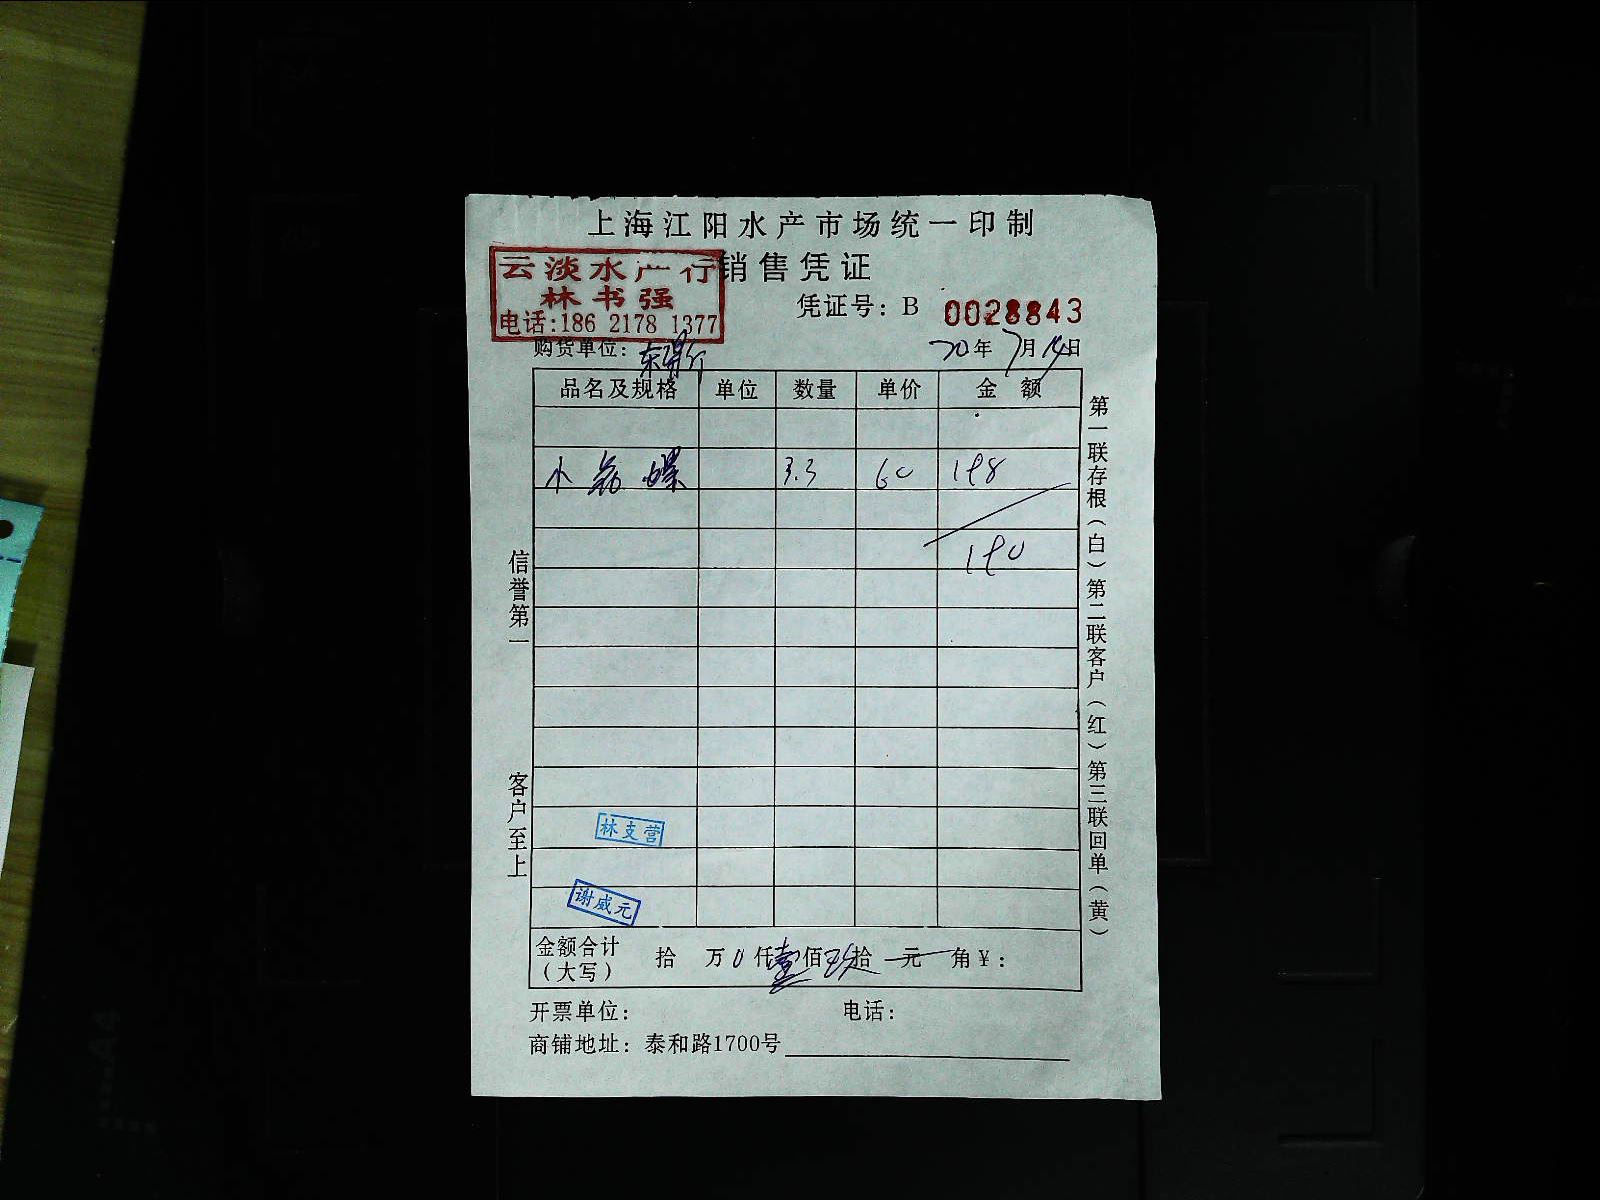 上海江阳水产市场统一印制
销售凭证
云淡水产行
林书强
电话:186 2178 1377
凭证号：B 0028843
购货单位：
20年7月14日
品名及规格 单位 数量 单价 金额
小 螺 3.3 60 198
190
信誉第一
客户至上
第一联存根（白）第二联客户（红）第三联回单（黄）
林支营
谢威元
金额合计（大写） 拾 万 0 仟 壹 佰 玖 拾 元 角 ¥：
开票单位： 电话：
商铺地址：泰和路1700号